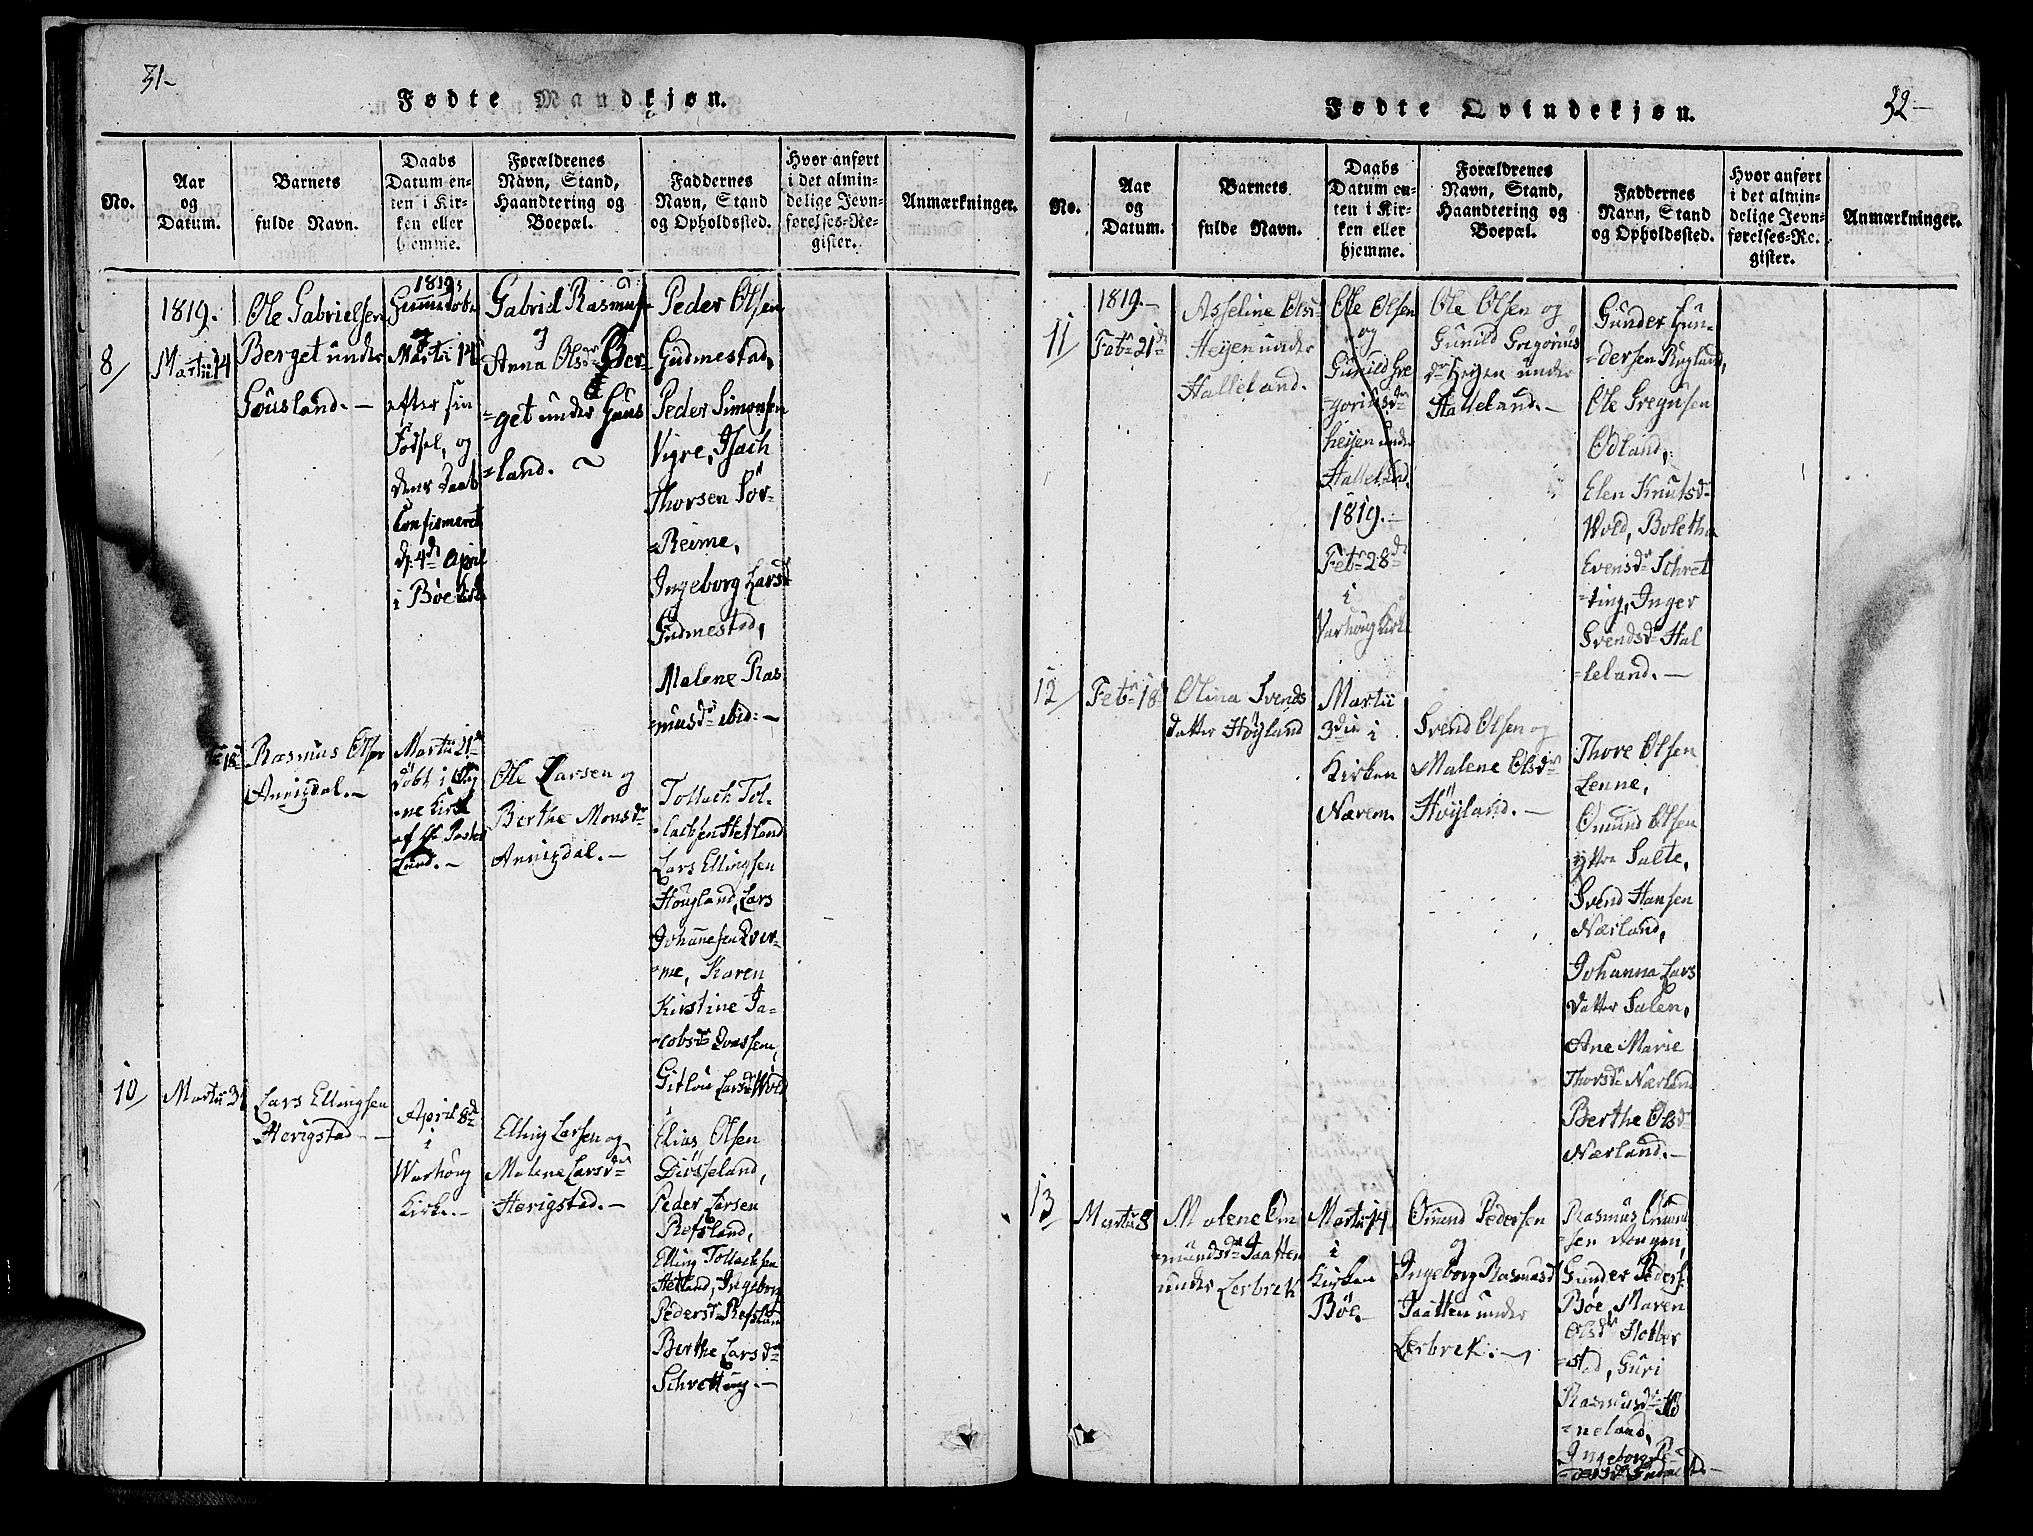 31-
Fødte Mandkjøn.
No.
Aar
og
Datum.
Barnets
fulde Navn.
Daabs
Datum en-
ten i Kir-
ken eller
hjemme.
Forældrenes
Navn, Stand,
Haandtering og
Boepæl.
Faddernes
Navn, Stand
og Opholdssted.
Hvor anført
i det almin-
delige Jevn-
førelses-Re-
gister.
Anmærkninger.
8/
1819.
Martii 14
Ole Gabrielsen
Berget under
Gousland. -
1819:
Martii 14
efter sin
Fødsel, og
dens Daab
Confirmeret
d. 4de April
i Bøe Kirke
Gabriel Rasmus-
og
Anna Olsdr Ber-
=get under Gaus
=land. ~
Peder Olsen
Gudmestad,
Peder Simonsen
Vigre, Isach
Thorsen Sør-
=Reime,
Ingeborg Larsdr
Gudmestad,
Malene Ras
=musdr ibid: -
18
Rasmus Olsen
Annigdal. -
Martii 21de
døbt i Og
=ne Kirke
af Hr Pastor
Lund. -
Ole Larsen og
Berthe Monsdr
Annigdal. -
Tollach Tol-
=lachsen Hetland
Lars Ellingsen
Høugland, Lars
Johannesen Qver-
=me, Karen
Kirstine Ja-
=cobsdr
Gitlou Larsdr Wold
10/
Martii 31
Lars Ellingsen
Herigstad -
April 8de
i
Warhoug
Kirke. -
Elling Larsen og
Malene Larsdr
Herigstad. -
Elias Olsen
Diusseland,
Peder Larsen
Refsland,
Elling Tollachsen
Hetland, Ingeborg
Pedersdr Refsland
Berthe Larsdr
Schretting -
32-
Fødte Qvindekjøn.
No.
Aar
og
Datum.
Barnets
fulde Navn.
Daabs
Datum en-
ten i Kir-
ken eller
hjemme.
Forældrenes
Navn, Stand,
Haandtering og
Boepæl.
Faddernes
Navn, Stand
og Opholdssted.
Hvor anført
i det almin-
delige Jevn-
førelses-Re-
gister.
Anmærkninger.
11/
1819. -
Febr 21de
Asseline Ols-
Heyen under
Halleland.
Ole Olsen
og
Gunild Gre
=goriusdr
Heyen under
Halleland.
1819. -
Febr 28de
i
Varhoug Kirke
Ole Olsen og
Gunild Gregorius
dr Heyen under
Halleland. -
Gunder Gun-
=dersen Rugland,
Ole Gregusen
Odland,
Elen Knutsdr
Wold, Boletha
Evensdr Schret
=ting, Inger
Svendsdr Hal
=leland. -
12/
Febr 18
Olina Svends
datter Høyland
Martii
3die i
Kirken
Nærem.
Svend Olsen og
Malene Olsdr
Høyland. -
Thore Olsen
Lenne,
Omund Olsen
yttre Salte,
Svend Hansen
Nærland,
Johanna Lars
datter Salen,
Ane Marie
Thorsdr Nærland
Berthe Olsdr
Nærland. -
13/
Martii 8
Malene Om
=mundsdr Taatten
under Lerbrek
Martii 14
i
Kirken
Bøe. -
Omund Pedersen
og
Ingeborg Rasmusdr
Taatten under
Lerbrek. -
Rasmus Omund
=sen Haugen,
Gunder Peders.
Bøe, Maren
Olsdr Hobber
=stad, Guri
Rasmusdr
=neland,
Ingeborg Pe